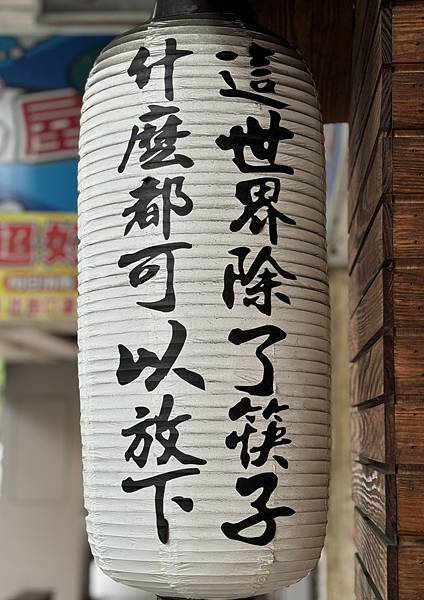 這世界除了筷子
什麼都可以放下
超好